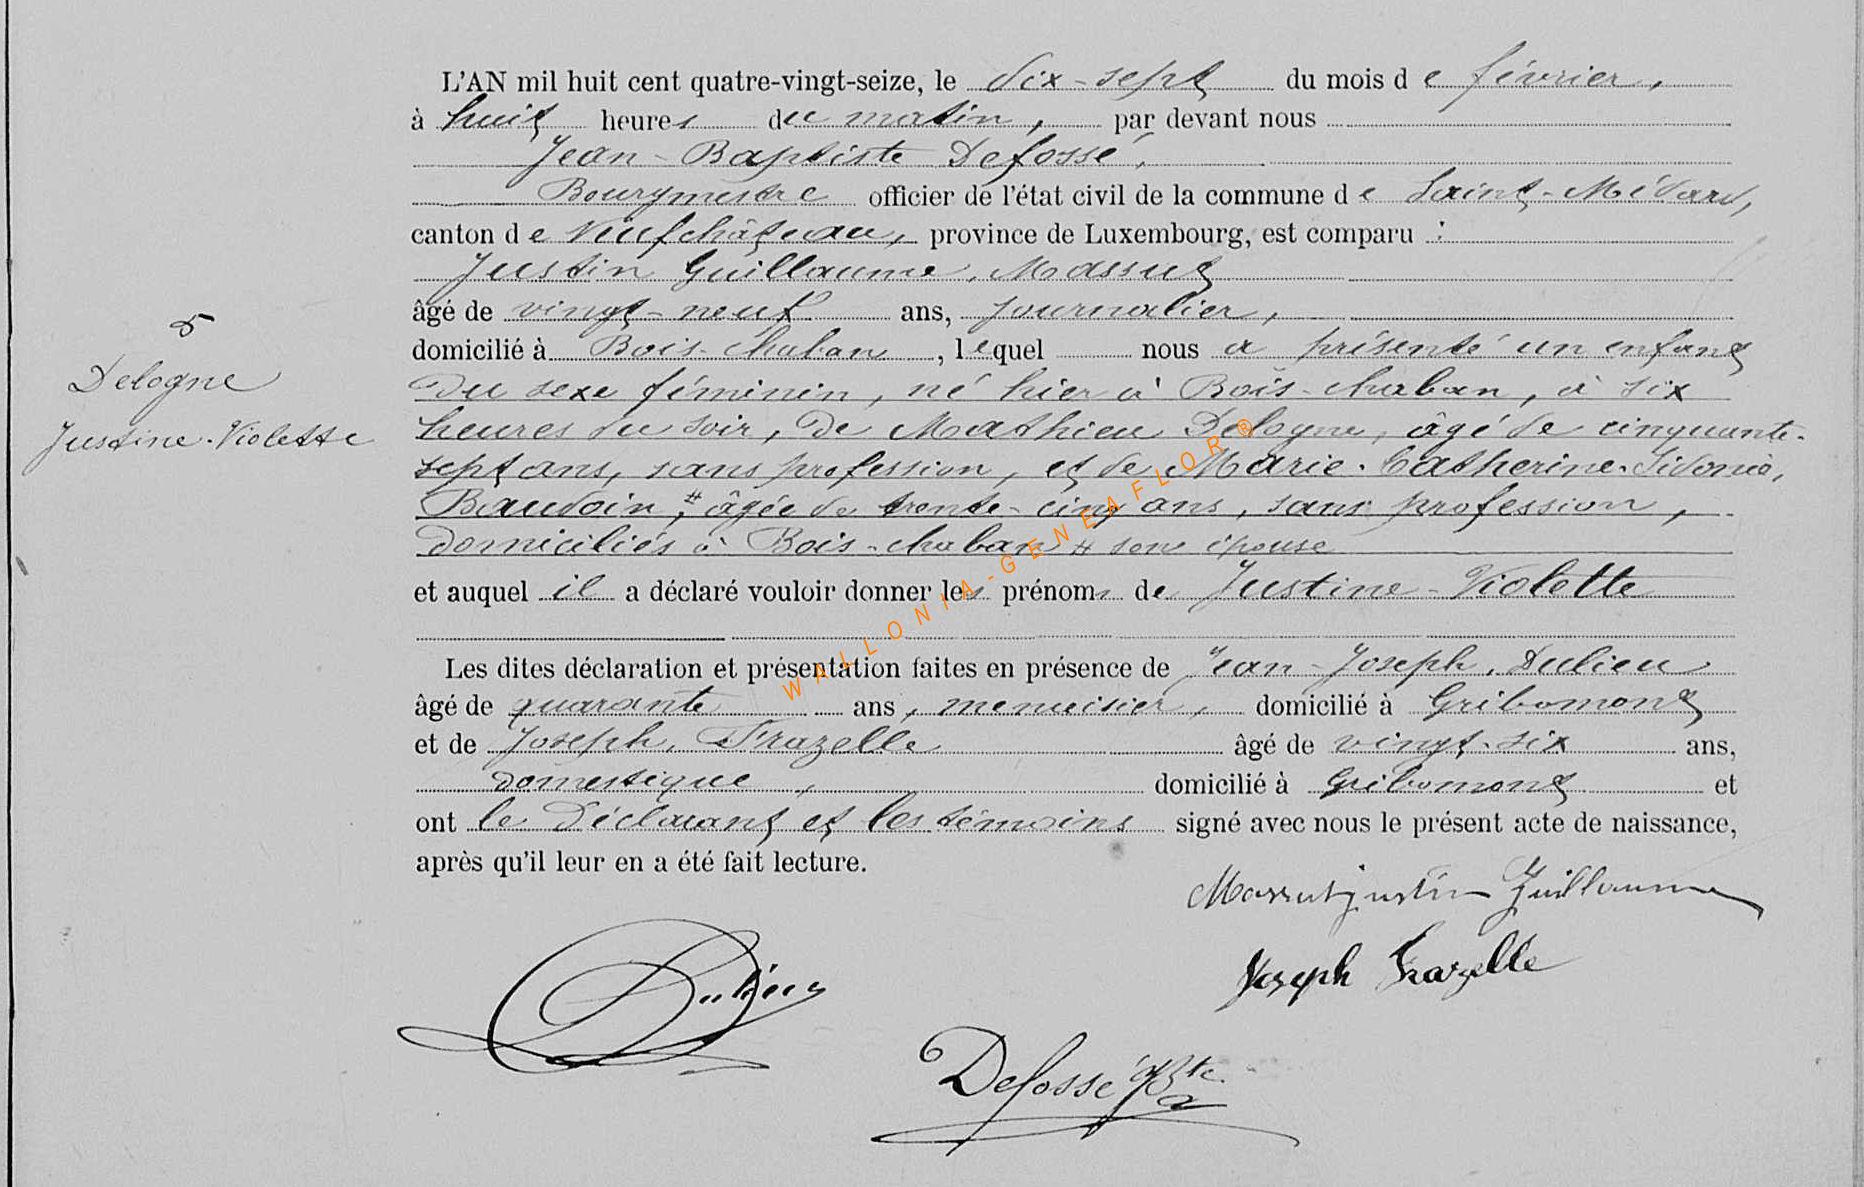 L'AN mil huit cent quatre-vingt-seize, le dix-sept du mois de février,
à huit heures du matin, par devant nous
Jean-Baptiste Defossé,
Bourgmestre officier de l'état civil de la commune de Saint-Médard,
canton de Neufchâteau, province de Luxembourg, est comparu :
Justin Guillaume, Massut
âgé de vingt-neuf ans, journalier,
domicilié à Bois-chaban, lequel nous a présenté un enfant
du sexe féminin, né hier à Bois-chaban, à six
heures du soir, de Mathieu Delogne, âgé de cinquante-
sept ans, sans profession, et de Marie-Catherine-Sidonie,
Baudoin, # âgée de trente-cinq ans, sans profession,
domiciliés à Bois-chaban # son épouse
et auquel il a déclaré vouloir donner les prénoms de Justine-Violette
Les dites déclaration et présentation faites en présence de Jean-Joseph, Dulieu
âgé de quarante ans, menuisier, domicilié à Gribomont
et de Joseph, Frazelle âgé de vingt-six ans,
domestique, domicilié à Gribomont et
ont le déclarant et les témoins signé avec nous le présent acte de naissance,
après qu'il leur en a été fait lecture.
5
Delogne
Justine-Violette
Massut justin Guillaume
Joseph Frazelle
Dulieu
Defossé JBte
WALLONIA-GENEAFLOR®